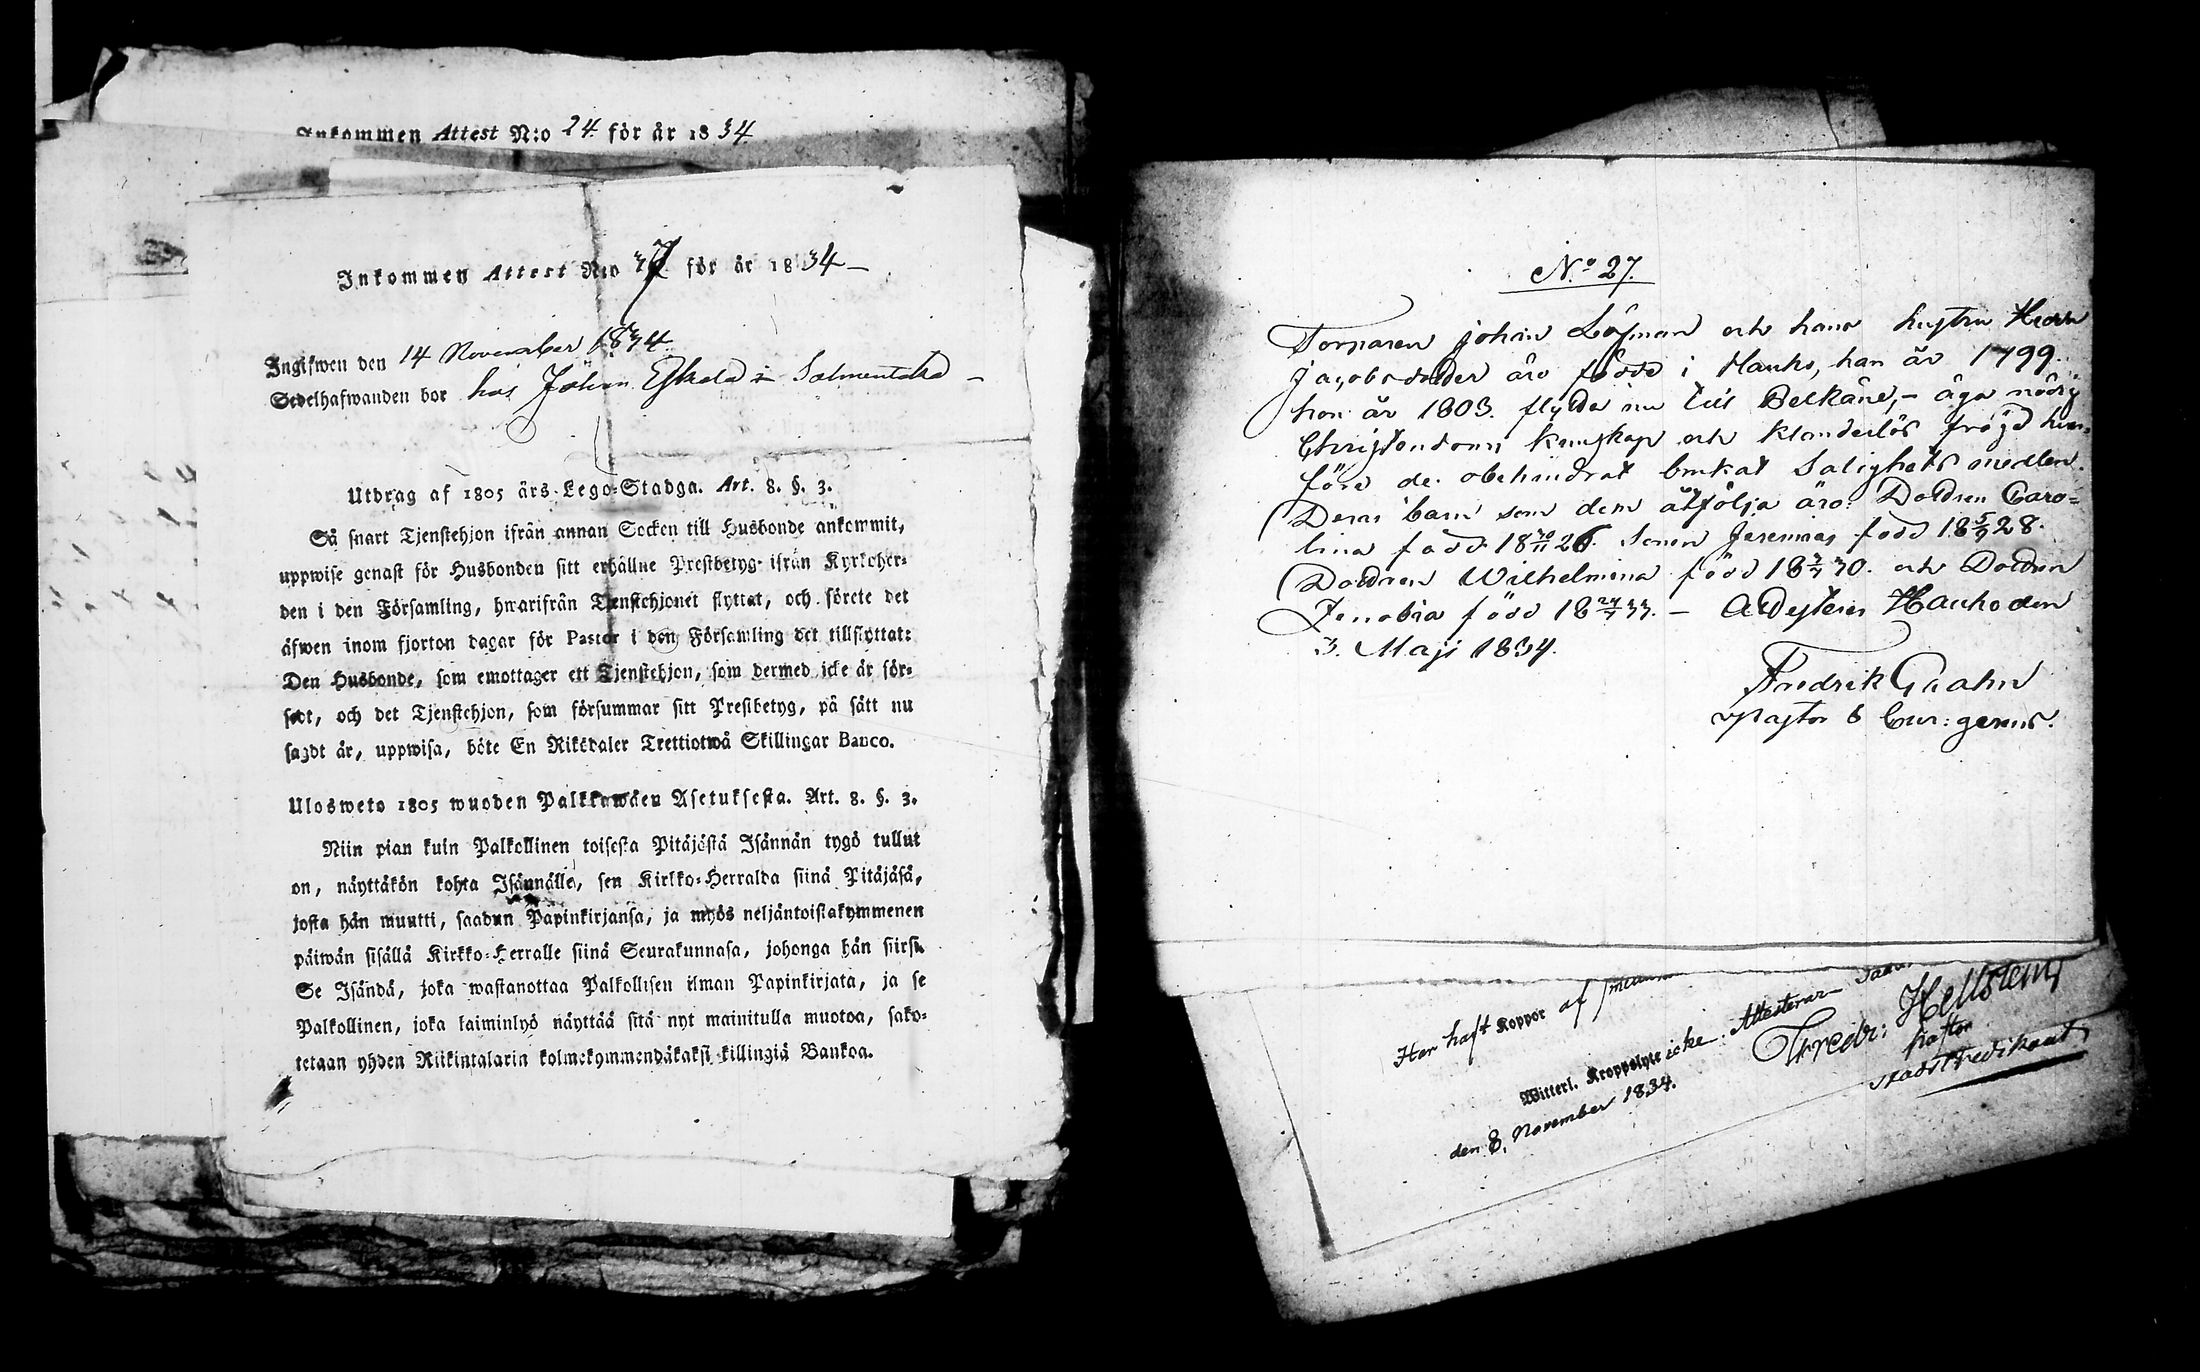 Inkommen Attest N:o 24. för år 1834.
Inkommen Attest N:o för år 1834 –
Ingifwen den 14 November 1834.
Sedelhafwanden bor hos Johan Eskola i Salmentaka –
Utdrag af 1805 års Lego-Stadga. Art. 8. §. 3.
Så snart Tjenstehjon ifrån annan Socken till Husbonde ankommit,
uppwise genast för Husbonden sitt erhållne Prestbetyg ifrån Kyrkoher-
den i den Församling, hwarifrån Tjenstehjonet flyttat, och förete det
äfwen inom fjorton dagar för Pastor i den Församling det tillflyttat:
Den Husbonde, som emottager ett Tjenstehjon, som dermed icke är för-
sedt, och det Tjenstehjon, som försummar sitt Prestbetyg, på sätt nu
sagdt är, uppwisa, böte En Riksdaler Trettiotwå Skillingar Banco.
Ulosweto 1805 wuoden Palkkawäen Asetuksesta. Art. 8. §. 3.
Niin pian kuin Palkollinen toisesta Pitäjästä Isännän tygö tullut
on, näyttäkön kohta Isännälle, sen Kirkko-Herralda siinä Pitäjäsä,
josta hän muutti, saadun Papinkirjansa, ja myös neljäntoistakymmenen
päiwän sisällä Kirkko-Herralle siinä Seurakunnasa, johonga hän siirsi.
Se Isändä, joka wastanottaa Palkollisen ilman Papinkirjata, ja se
Palkollinen, joka laiminlyö näyttää sitä nyt mainitulla muotoa, sako-
tetaan yhden Riikintalarin kolmekymmendäkaksi killingiä Bankoa.
N:o 27.
Torparen Johan Löfman och hans hustru Hedda
Jacobsdotter äro födde i Hauho, han år 1799.
hon år 1803. flytta nu till Belkäne, – äga nödig
Christendoms kunskap och klanderlös frögd hvar-
före de obehindrat brukat Salighets medlen.
Deras barn som dem åtfölja äro: Dottren Caro-
lina född 18 30/11 26. Sonen Jeremias född 18 5/9 28.
Dottren Wilhelmina född 18 30. och Dottren
Zenobia född 18 33. – Attesteras Hauho den
3. Maji 1834.
Fredrik Grahn
Pastor & Cur: gerens.
Har haft Koppor af
Witterl. Kroppslyte icke. Attesterar
den 8. November 1834.
Fredr: Hellsten
Pastor
Stadspredikant